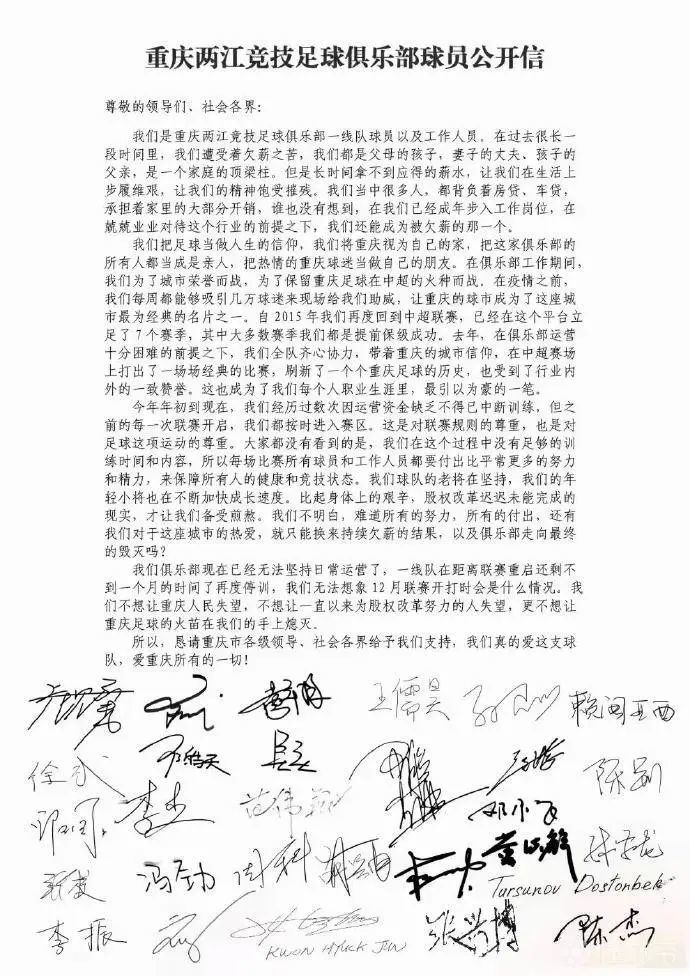 重庆两江竞技足球俱乐部球员公开信
尊敬的领导们、社会各界：
我们是重庆两江竞技足球俱乐部一线队球员以及工作人员，在过去很长一
段时间里，我们遭受着欠薪之苦，我们都是父母的孩子，妻子的丈夫、孩子的
父亲，是一个家庭的顶梁柱。但是长时间拿不到应得的薪水，让我们在生活上
步履维艰，让我们的精神饱受摧残。我们当中很多人，都背负着房贷、车贷，
承担着家里的大部分开销，谁也没有想到，在我们已经成年步入工作岗位，在
兢兢业业对待这个行业的前提之下，我们还能成为被欠薪的那一个。
我们把足球当做人生的信仰，我们将重庆视为自己的家，把这家俱乐部的
所有人都当成是亲人，把热情的重庆球迷当做自己的朋友。在俱乐部工作期间，
我们为了城市荣誉而战，为了保留重庆足球在中超的火种而战。在疫情之前，
我们每周都能够吸引几万球迷来现场给我们助威，让重庆的球市成为了这座城
市最为经典的名片之一。自 2015 年我们再度回到中超联赛，已经在这个平台立
足了 7 个赛季，其中大多数赛季我们都是提前保级成功。去年，在俱乐部运营
十分困难的前提之下，我们全队齐心协力，带着重庆的城市信仰，在中超赛场
上打出了一场场经典的比赛，刷新了一个个重庆足球的历史，也受到了行业内
外的一致赞誉。这也成为了我们每个人职业生涯里，最引以为豪的一笔。
今年年初到现在，我们经历过数次因运营资金缺乏不得已中断训练，但之
前的每一次联赛开启，我们都按时进入赛区。这是对联赛规则的尊重，也是对
足球这项运动的尊重。大家都没有看到的是，我们在这个过程中没有足够的训
练时间和内容，所以每场比赛所有球员和工作人员都要付出比平常更多的努力
和精力，来保障所有人的健康和竞技状态。我们球队的老将在坚持，我们的年
轻小将也在不断加快成长速度。比起身体上的艰辛，股权改革迟迟未能完成的
现实，才让我们备受煎熬。我们不明白，难道所有的努力，所有的付出，还有
我们对于这座城市的热爱，就只能换来持续欠薪的结果，以及俱乐部走向最终
的毁灭吗？
我们俱乐部现在已经无法坚持日常运营了，一线队在距离联赛重启还剩不
到一个月的时间了再度停训，我们无法想象 12 月联赛开打时会是什么情况。我
们不想让重庆人民失望，不想让一直以来为股权改革努力的人失望，更不想让
重庆足球的火苗在我们的手上熄灭。
所以，恳请重庆市各级领导、社会各界给予我们支持，我们真的爱这支球
队，爱重庆所有的一切！
王儒昊
陈剧
李杰
邓小飞
冯劲
周科
黄政敏
Tursunov Dostonbek
李振
KWON HYUCK JIN
陈杰